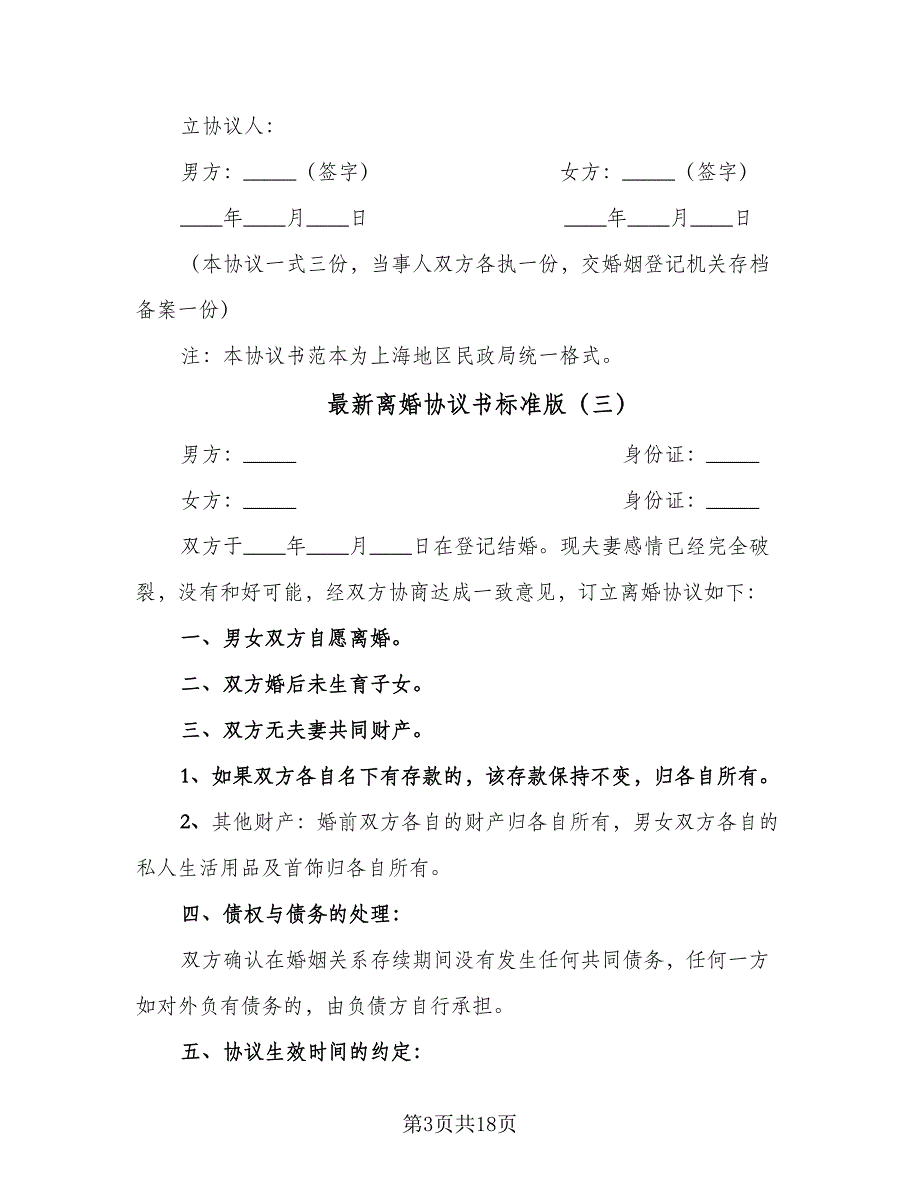 立协议人：
男方：_____（签字） 女方：_____（签字）
____年____月____日 ____年____月____日
（本协议一式三份，当事人双方各执一份，交婚姻登记机关存档
备案一份）
注：本协议书范本为上海地区民政局统一格式。
最新离婚协议书标准版（三）
男方：_____ 身份证：_____
女方：_____ 身份证：_____
双方于____年____月____日在登记结婚。现夫妻感情已经完全破
裂，没有和好可能，经双方协商达成一致意见，订立离婚协议如下：
一、男女双方自愿离婚。
二、双方婚后未生育子女。
三、双方无夫妻共同财产。
1、如果双方各自名下有存款的，该存款保持不变，归各自所有。
2、其他财产：婚前双方各自的财产归各自所有，男女双方各自的
私人生活用品及首饰归各自所有。
四、债权与债务的处理：
双方确认在婚姻关系存续期间没有发生任何共同债务，任何一方
如对外负有债务的，由负债方自行承担。
五、协议生效时间的约定：
第3页共18页